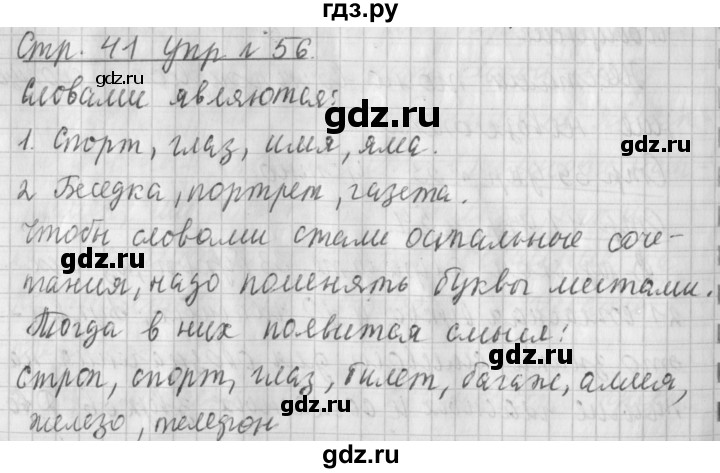 гдз.ру
Стр. 41 упр № 56.
Словами являются:
gdz.ru
gdz.ru
1. Спорт, глаз, имя, яма.
2 Беседка, портрет, газета.
gdz.ru
gdz.ru
Чтобы словами стали остальные соче-
gdz.ru
тания, надо поменять буквы местами.
Тогда в них появится смысл:
gdz.ru
строп, спорт, глаз, билет, багаж, аллея,
железо, телефон
gdz.ru
gdz.ru